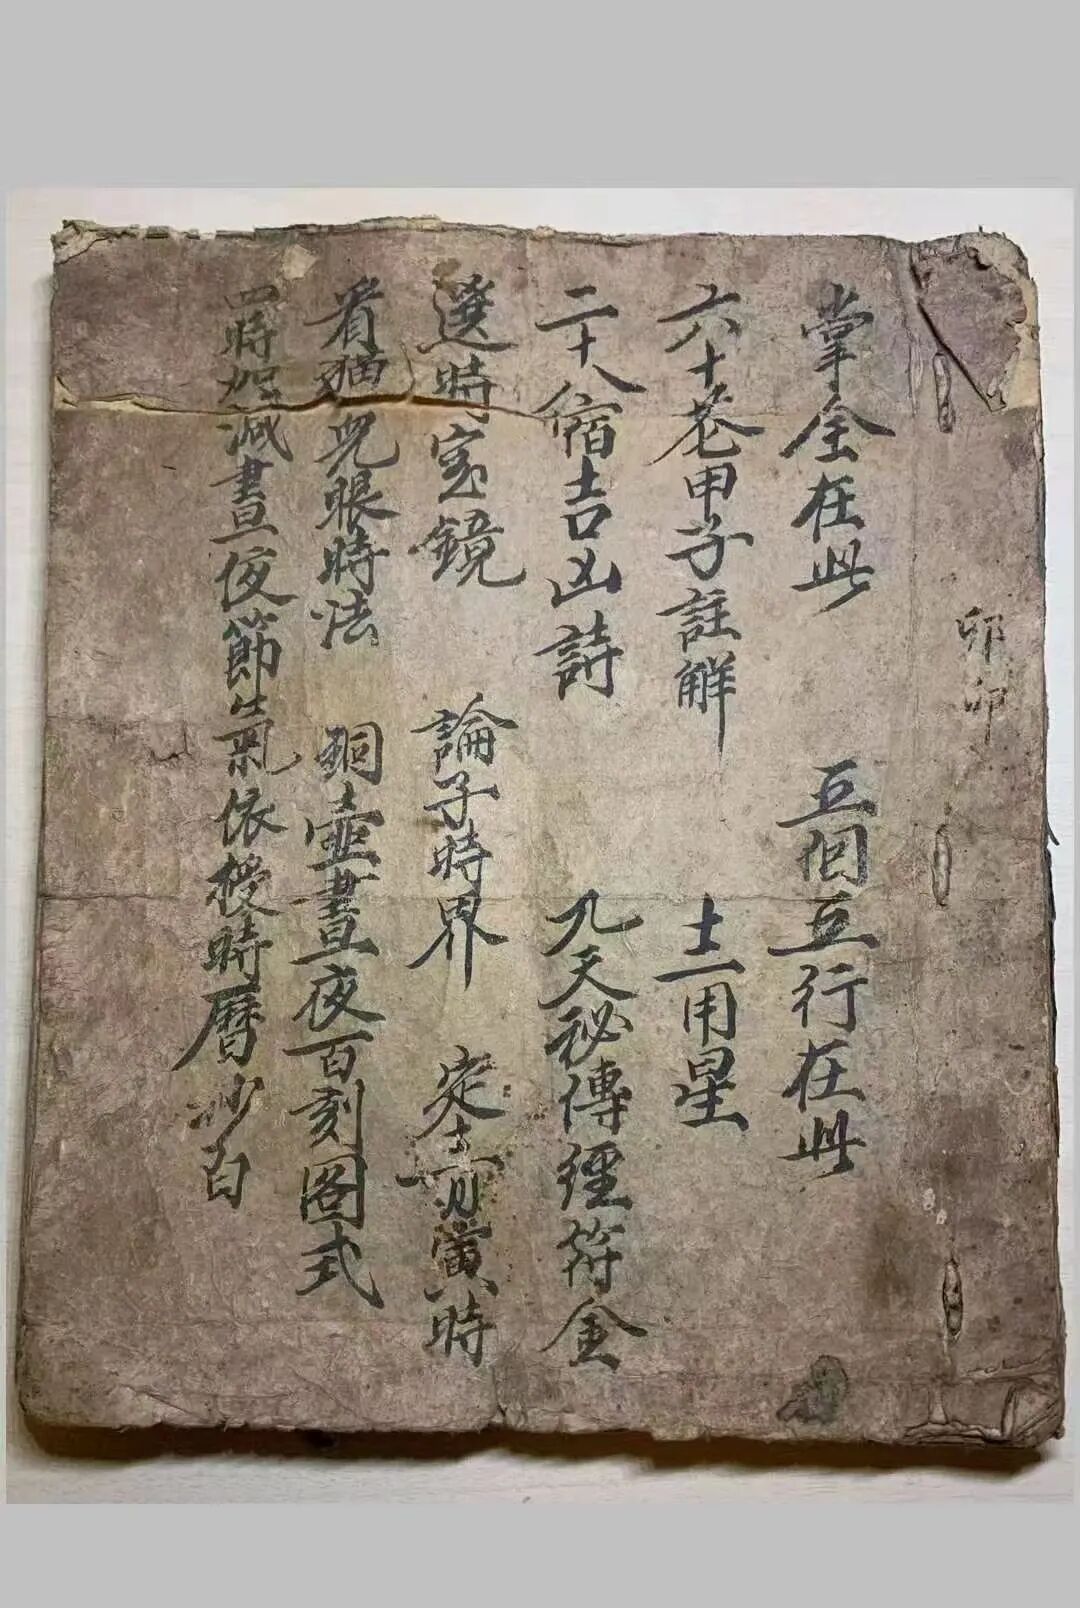 卯卯
掌全在此 五個五行在此
六十花甲子註解 十二用星
二十八宿吉凶詩 九天秘傳經符全
選時宝鏡 論子時界 定十二月寅時
看猫兒眼時法 銅壷晝夜百刻图式
四時加減晝夜節氣依授時曆抄白